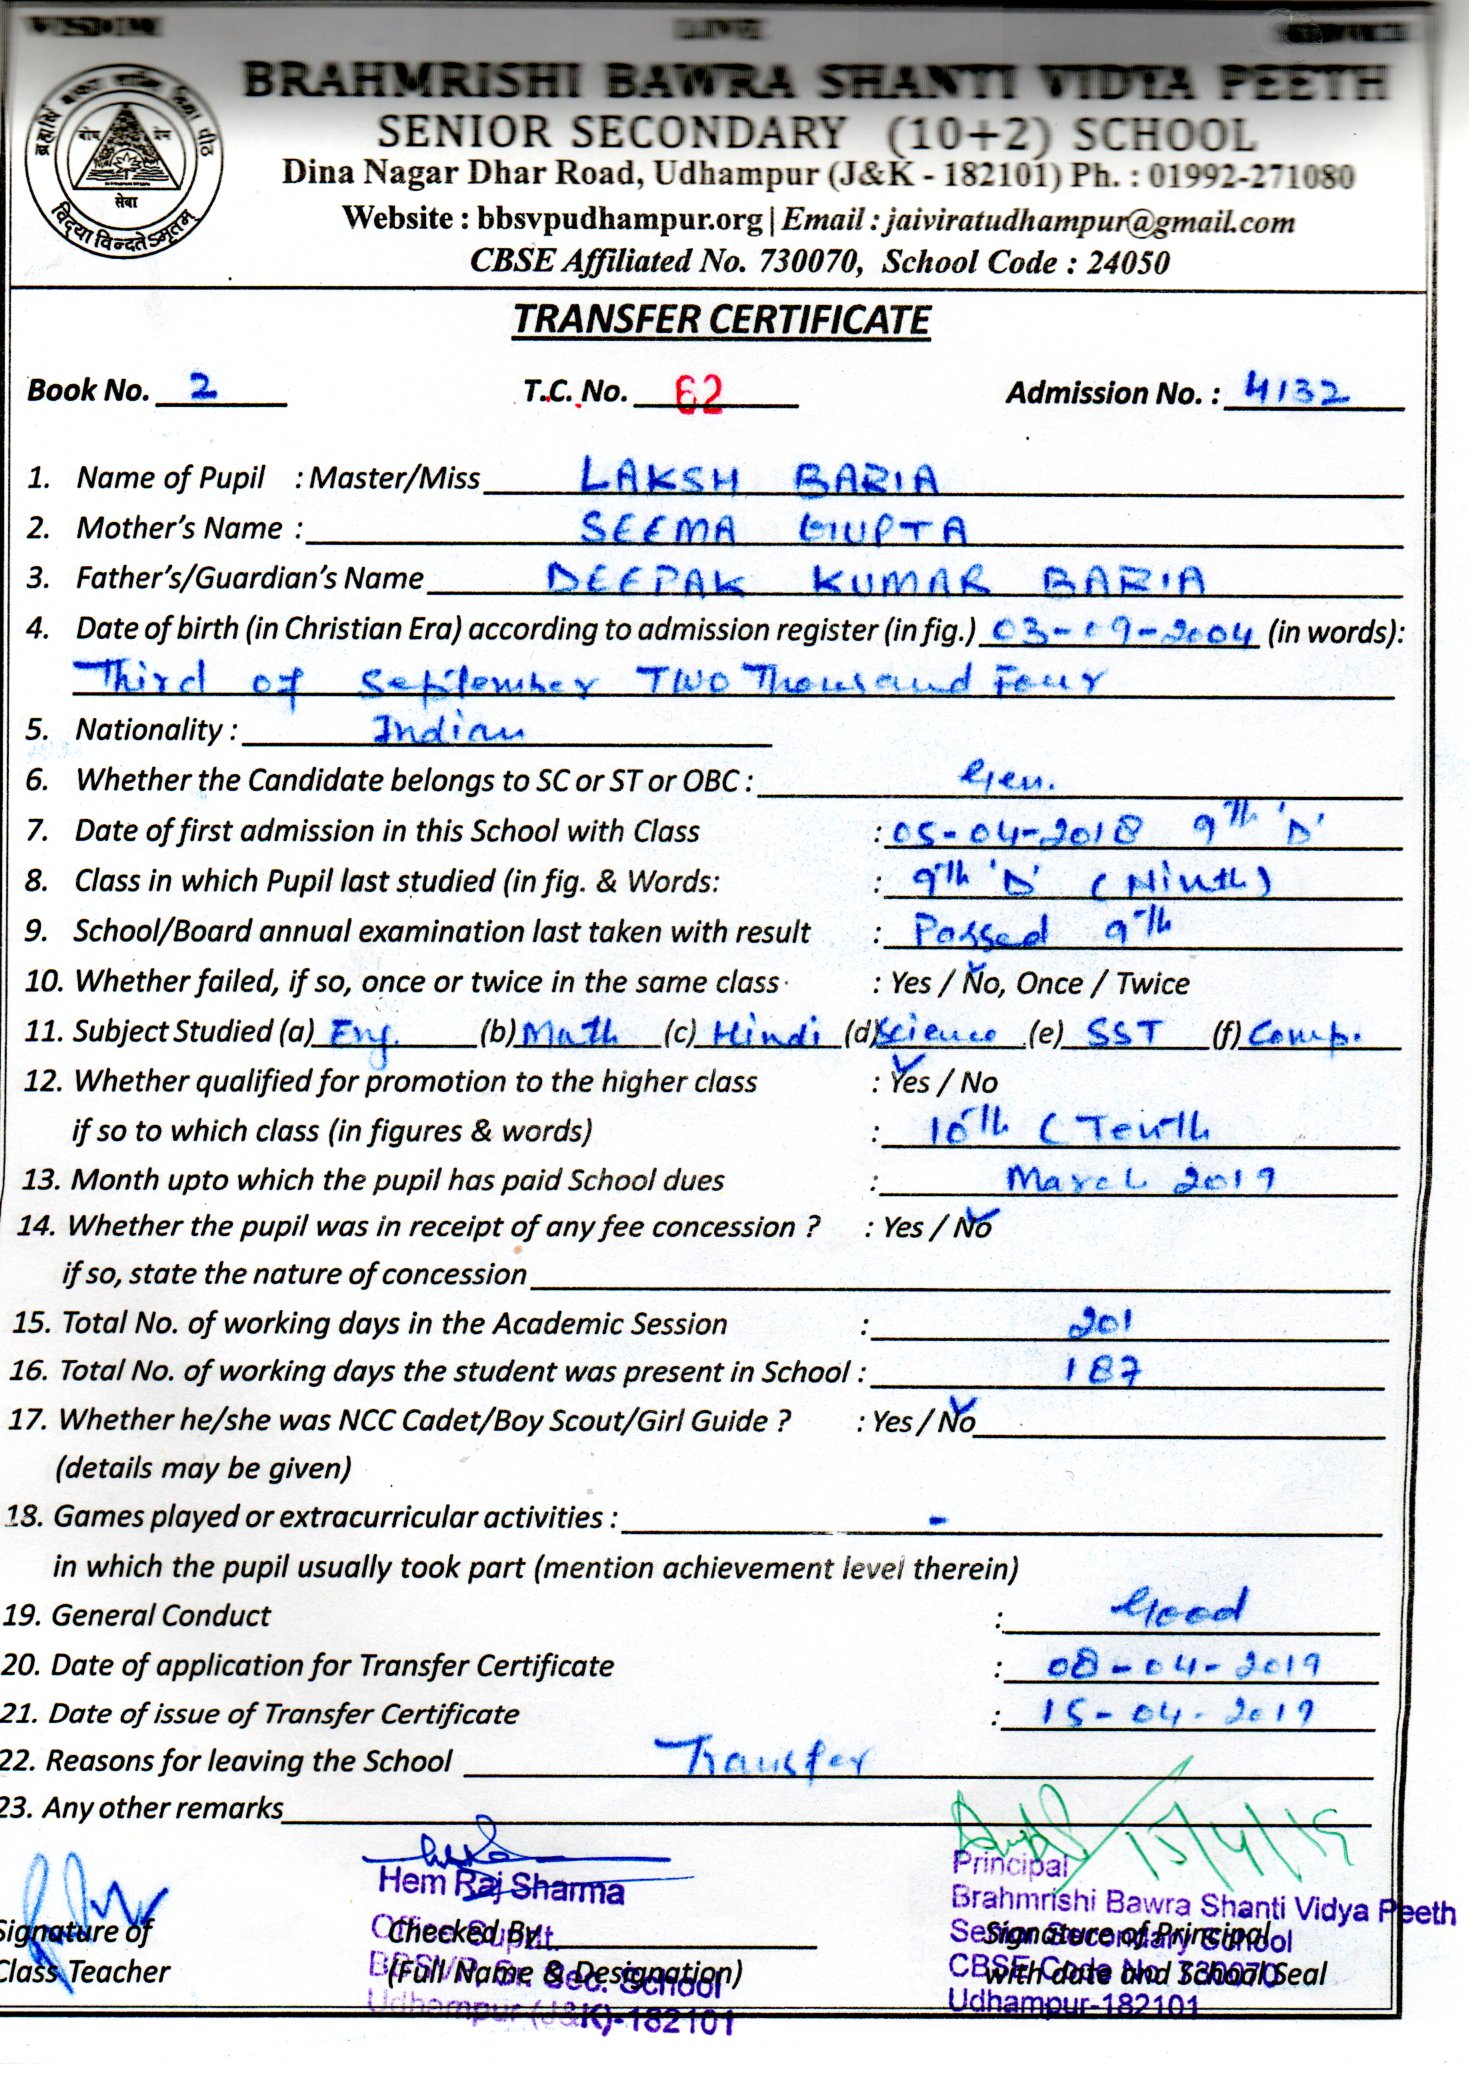 WISDOM LOVE SERVICE
BRAHMRISHI BAWRA SHANTI VIDYA PEETH
SENIOR SECONDARY (10+2) SCHOOL
Dina Nagar Dhar Road, Udhampur (J&K - 182101) Ph. : 01992-271080
Website : bbsvpudhampur.org | Email : jaiviratudhampur@gmail.com
CBSE Affiliated No. 730070, School Code : 24050
बोध प्रेम
सेवा
विद्या विन्दतेऽमृतम्
TRANSFER CERTIFICATE
Book No. 2 T.C. No. 62 Admission No. : 4132
1. Name of Pupil : Master/Miss LAKSH BARIA
2. Mother's Name : SEEMA GUPTA
3. Father's/Guardian's Name DEEPAK KUMAR BARIA
4. Date of birth (in Christian Era) according to admission register (in fig.) 03-09-2004 (in words):
Third of September Two Thousand Four
5. Nationality : Indian
6. Whether the Candidate belongs to SC or ST or OBC : Gen.
7. Date of first admission in this School with Class : 05-04-2018 9th 'D'
8. Class in which Pupil last studied (in fig. & Words: : 9th 'D' (Ninth)
9. School/Board annual examination last taken with result : Passed 9th
10. Whether failed, if so, once or twice in the same class : Yes / No, Once / Twice
11. Subject Studied (a) Eng. (b) Math (c) Hindi (d) Science (e) SST (f) Comp.
12. Whether qualified for promotion to the higher class : Yes / No
if so to which class (in figures & words) : 10th (Tenth
13. Month upto which the pupil has paid School dues : March 2019
14. Whether the pupil was in receipt of any fee concession ? : Yes / No
if so, state the nature of concession
15. Total No. of working days in the Academic Session : 201
16. Total No. of working days the student was present in School : 187
17. Whether he/she was NCC Cadet/Boy Scout/Girl Guide ? : Yes / No
(details may be given)
18. Games played or extracurricular activities : -
in which the pupil usually took part (mention achievement level therein)
19. General Conduct : Good
20. Date of application for Transfer Certificate : 08-04-2019
21. Date of issue of Transfer Certificate : 15-04-2019
22. Reasons for leaving the School Transfer
23. Any other remarks
15/4/19
Hem Raj Sharma Principal
Brahmrishi Bawra Shanti Vidya Peeth
Signature of Checked By Signature of Principal
Class Teacher (Full Name & Designation) with date and School Seal
Office Supdt. Senior Secondary School
BBSVP Sr. Sec. School CBSE Code No. 730070
Udhampur (J&K)-182101 Udhampur-182101